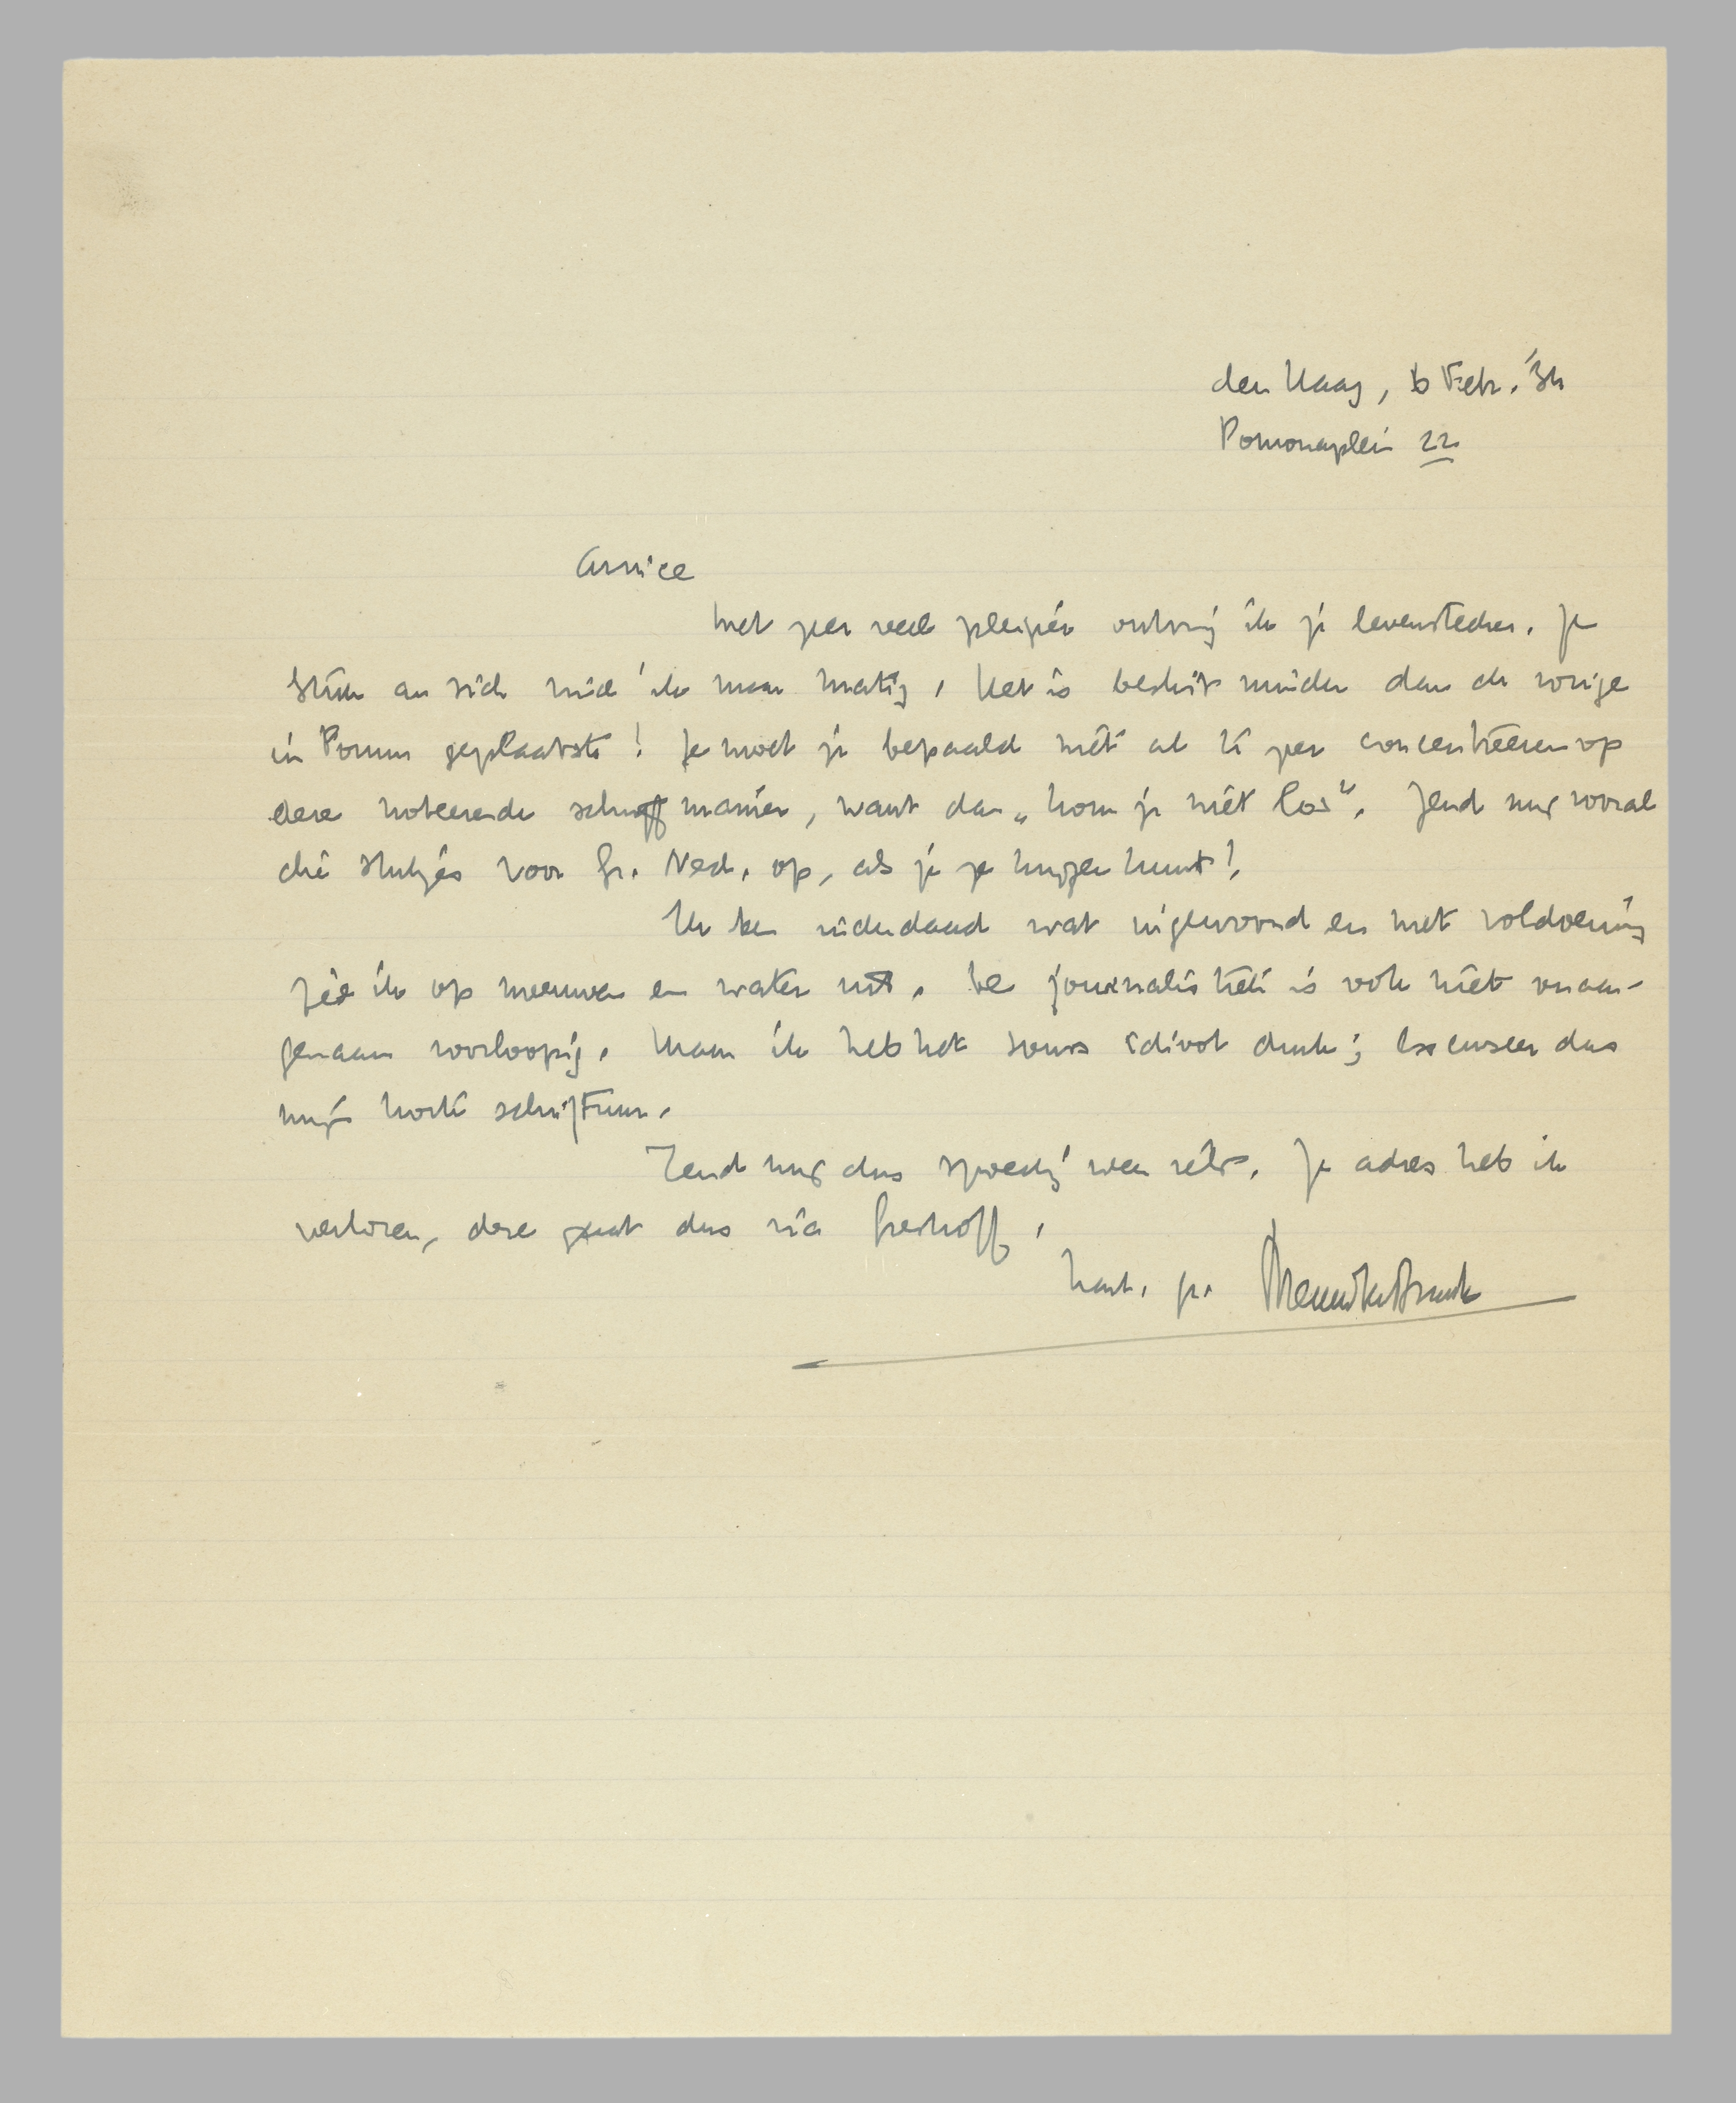 den Haag, 6 Febr. '34
Pomonaplein 22
Amice
Met zeer veel pleizier ontving ik je levensteeken. Je
stuk an sich vind ik maar matig, het is beslist minder dan de vorige
in Forum geplaatste! Je moet je bepaald niet al te zeer concentreeren op
deze noteerende schrijfmanier, want dan „kom je niet los”. Zend mij vooral
die stukjes voor Gr. Ned. op, als je ze krijgen kunt!
Ik ben inderdaad wat ingewoond en met voldoening
zie ik op meeuwen en water uit. De journalistiek is ook niet onaan-
genaam voorloopig. Maar ik heb het soms idioot druk; excuseer dus
mijn korte schrijfsum.
Zend mij dus spoedig weer iets. Je adres heb ik
verloren, deze gaat dus via Greshoff.
hart. gr. Menno ter Braak